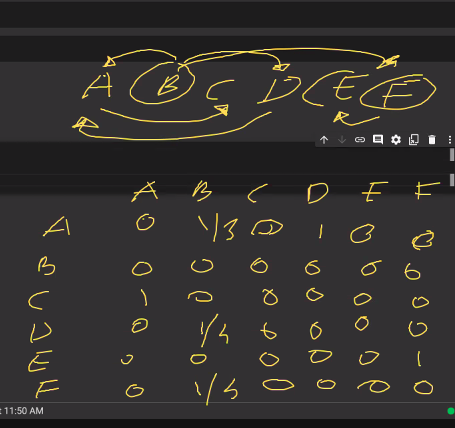 A B C D E F
A B C D E F
A 0 1/3 0 1 0 0
B 0 0 0 0 0 0
C 1 0 0 0 0 0
D 0 1/3 0 0 0 0
E 0 0 0 0 0 1
F 0 1/3 0 0 0 0
t 11:50 AM